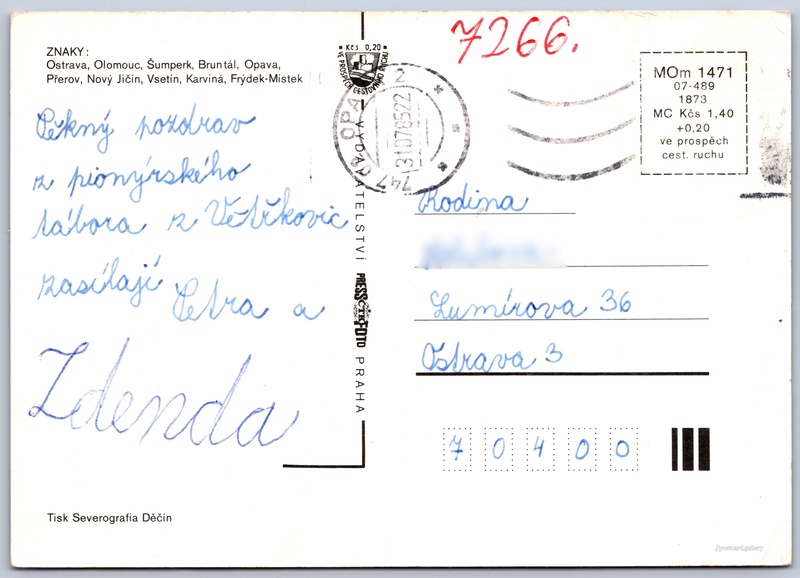 ZNAKY:
Ostrava, Olomouc, Šumperk, Bruntál, Opava,
Přerov, Nový Jičín, Vsetín, Karviná, Frýdek-Místek
Pěkný pozdrav
z pionýrského
tábora z Větřkovic
zasílají Petra a
Zdenda
Tisk Severografia Děčín
Kčs 0,20
VE PROSPĚCH CESTOVNÍHO RUCHU
VYDAVATELSTVÍ
PRESSFOTO
ČTK
PRAHA
7266.
747 OPAVA 2
MOm 1471
07-489
1873
MC Kčs 1,40
+0,20
ve prospěch
cest. ruchu
Rodina
Lumírova 36
Ostrava 3
7 0 4 0 0
postcard.gallery